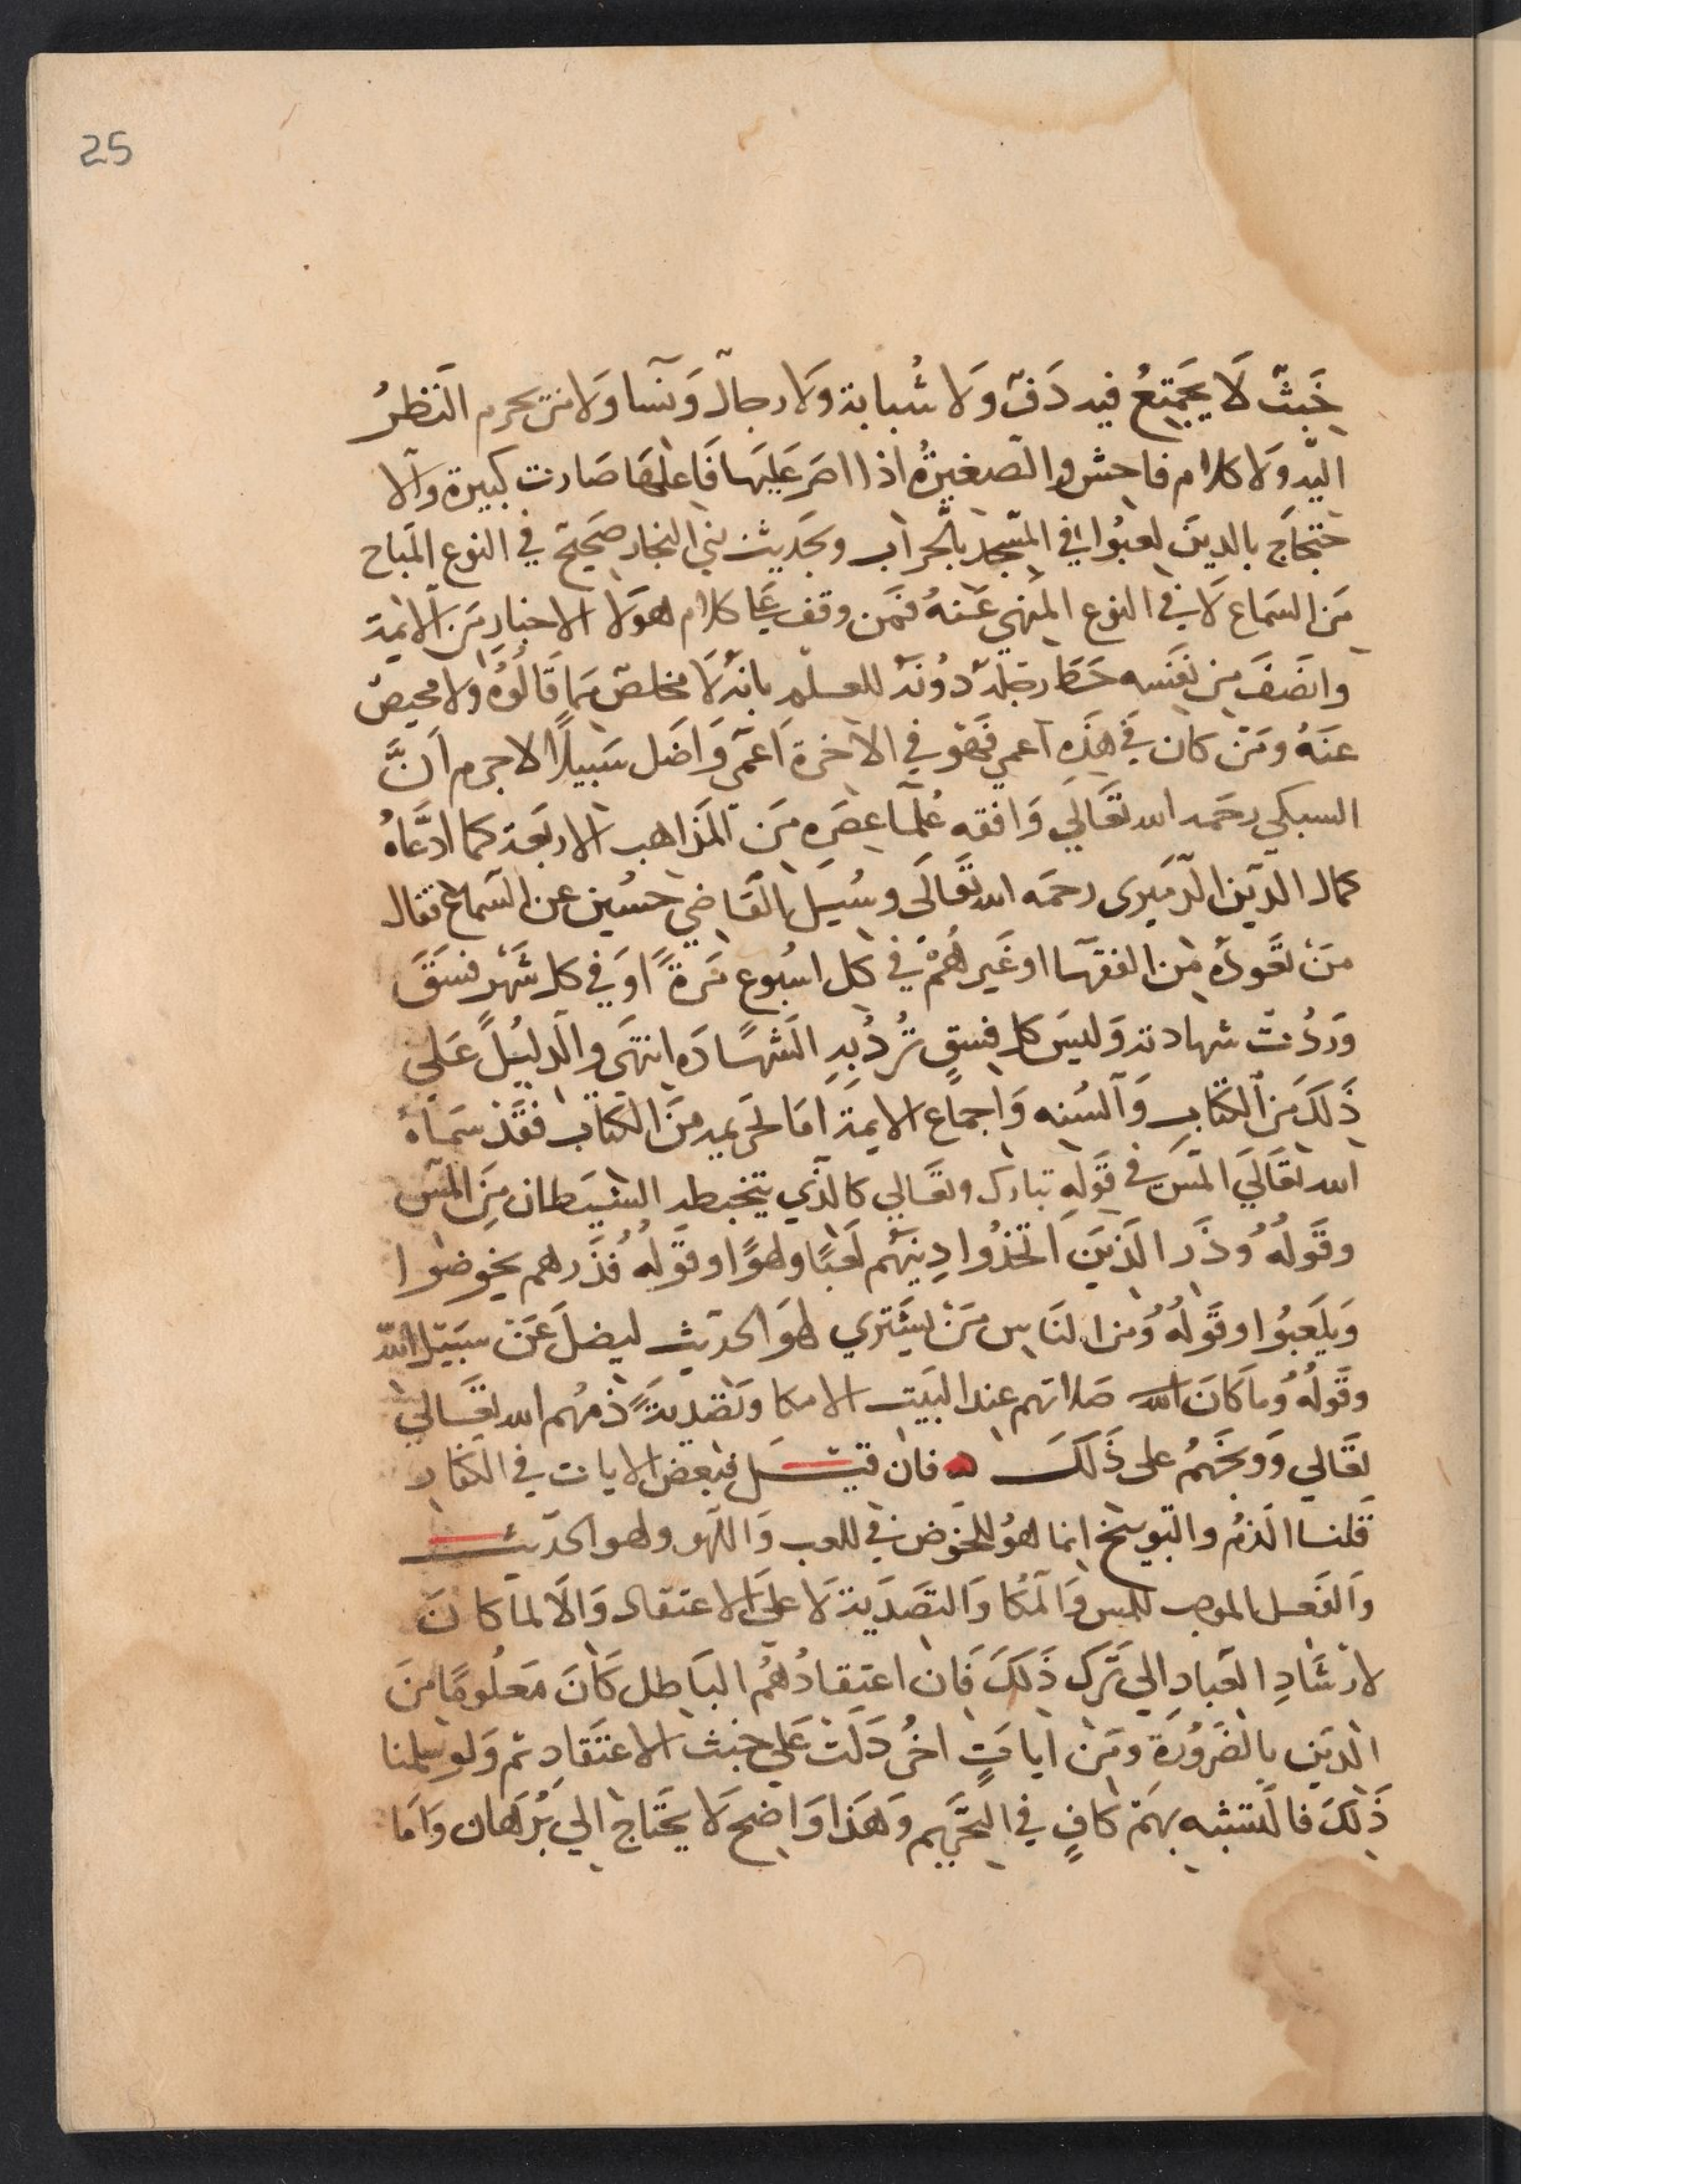 25
خَبثّ لَا يجَمِتعُ فيه دَفّ وَلا شُبابة وَلا رجالّ وَنسَا وَلا من يحرم النَظرُ
اليّه وَلا كلام فاحش والصغيرةُ اذا اصَر عَليهَا فَاعلهَا صَارت كبيرة والا
حتجاَج بالدينَ لعبُوا في المسَجد بالحراب وبحَديث بني النجار صَحيِح في النوع المَباح
مَن السَماع لَا في النوع المنهي عَنهُ فمَن وقف عَلي كلام هوَلا الاخيارِ مَن الائمة
وانصَفَ مِن نفسَه حَط رحَله دُونَه للعسلم بانهُ لَا مخلصّ مما قَالوُه ولا محيصّ
عنَهُ ومَن كان في هَذَه اعمي فهَو في الاخرة اَعمَي وَاضَل سَبيلاً لا جرم اَنَّ
السبكي رحَمه الله تعَالَي وَافقه عُلمَا عصَره مَن المَذاهب الاربعَة كما ادعَّاهُ
كمال الدين الدَميَرى رحمَه الله تعَالَي وسُيلَ القَاضي حسُين عن السَماع فقال
منَ تعَودُه من الفقهَا او غَيرهُمْ في كل اسُبوع مَرةً اوَ في كل شَهَر فسَقَ
وَردُتَ شهادته وَليسَ كل فِسقٍ تُردُ بِهِ الشَهَادَه انتهَي والدليُلَ عَلي
ذَلكَ مَن الكتابِ وَالسُنه وَاجماَع الايمة امَا تحَريمه منَ الكتاب فقَد سَمَاهُ
الله تعَالَي المَس في قوَلِهِ تبارَك وتعَالي كالذي يتخبطه الشيَطان مِنَ المَس
وقَولهُ وُذَر الذيَن اَتخذُوا دِينهَم لعَبًا ولهوًا وقوَلهُ فُذَرهم يخوضوا
وَيلَعَبُوا وقَولُهُ وُمن النَاس مَنَ يشَتري لهوَ الحديث ليضلَ عَن سَبيَل الله
وقَولُهُ وُما كَانَ الله صَلاتهم عند البَيَت الا مكا وَتصَديةً ذمهُم الله تعَالي
تعَالي وَوبخَهمُ على ذَلكَ فان قيل فبَعض الايات في الكفار
قلنا الذمُ والتوبيخ انما هوُ للخوَض في للعب وَاللَهو ولهو الحَديث
وَالفعَل الموجب للمس وَالمكا وَالتصَدَية لَا علَي الاعتقاد وَالَا لماَ كانَ
لارشَادِ العبَاد الي تَركَ ذَلكَ فَان اعتِقادُهُم البَاطل كَانَ مَعلُومًا منَ
الديَن بالضَروُرَة ومَن اياتٍ اخُر دَلت عَلي خبثَ الاعتقَاد ثم وَلو سَلمنا
ذَلكَ فالتشبه بهَم كافٍ في التحَريم وَهذَا وَاضح لَا يحَتاج الي بُرَهان وَامَا